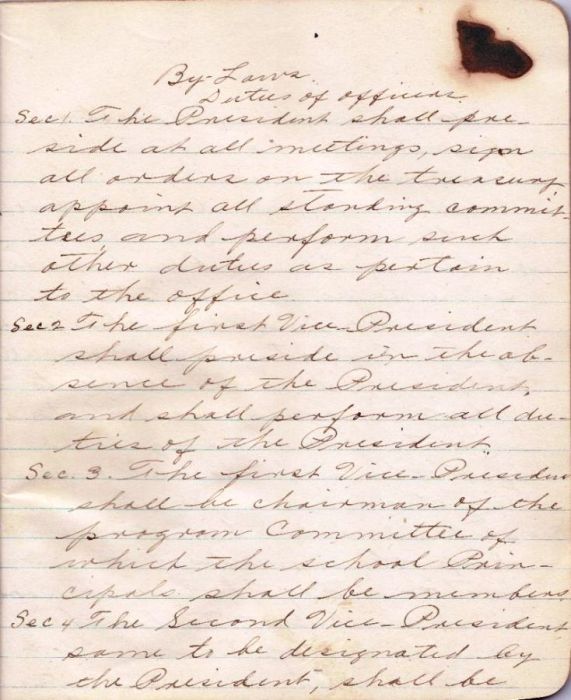 By-Laws.
Duties of officers.
Sec 1. The President shall pre-
side at all meetings, sign
all orders on the treasury
appoint all standing commit-
tees, and perform such
other duties as pertain
to the office
Sec 2 The first Vice-President
shall preside in the ab-
sence of the President,
and shall perform all du-
ties of the President.
Sec. 3. The first Vice-President
shall be chairman of the
program Committee of
which the school Prin-
cipals shall be members.
Sec 4 The Second Vice-President
same to be designated by
the President, shall be